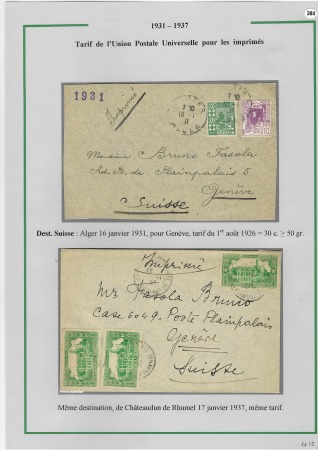 384
1931 – 1937
Tarif de l'Union Postale Universelle pour les imprimés
1931
Imprimé
7 10
16 - 1
31
Monsieur Bruno Fasola
Ad. B. de Plainpalais 5
Genève
Suisse
Dest. Suisse : Alger 16 janvier 1931, pour Genève, tarif du 1er août 1926 = 30 c. ≥ 50 gr.
Imprimé
Mr Fasola Bruno
Case 6049. Poste Plainpalais
Genère
Suisse
Même destination, de Châteaudun de Rhumel 17 janvier 1937, même tarif.